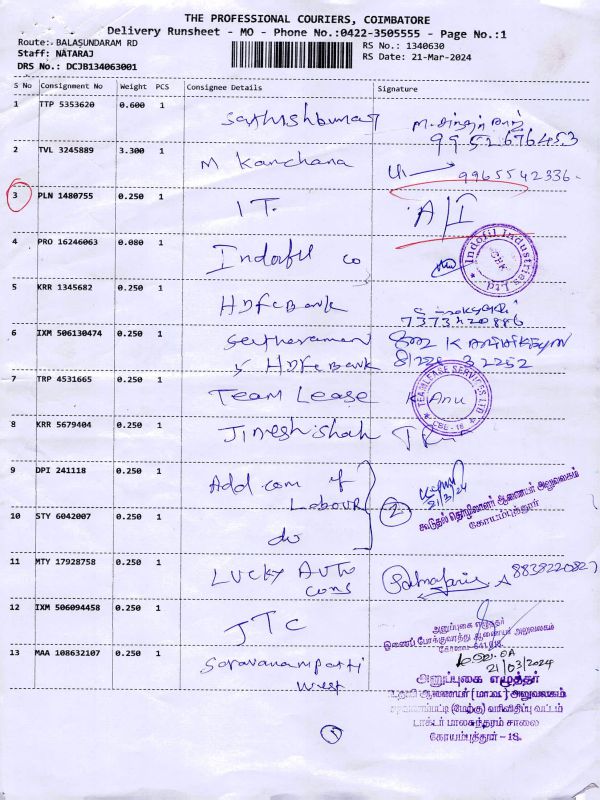 THE PROFESSIONAL COURIERS, COIMBATORE
Delivery Runsheet - MO - Phone No.:0422-3505555 - Page No.:1
Route: BALASUNDARAM RD
Staff: NATARAJ
DRS No.: DCJB134063001
RS No.: 1340630
RS Date: 21-Mar-2024
S No Consignment No Weight PCS Consignee Details Signature
1 TTP 5353620 0.600 1 Sathishkumar
2 TVL 3245889 3.300 1 M Kanchana 9965542336-
3 PLN 1480755 0.250 1 I T.
4 PRO 16246063 0.080 1 Indofil co
Indofil Industries Ltd. CBE
5 KRR 1345682 0.250 1 HDFC Bank
7373420886
6 IXM 506130474 0.250 1 Seetharaman
HDFC Bank
7 TRP 4531665 0.250 1 Team Lease K Anu
TEAMLEASE SERVICES LTD CBE-18
8 KRR 5679404 0.250 1 Jinesh shah
9 DPI 241118 0.250 1 Add com of
Labour 2
21/3/24
கூடுதல் தொழிலாளர் ஆணையர் அலுவலகம்
கோயம்புத்தூர்
10 STY 6042007 0.250 1 do
11 MTY 17928758 0.250 1 Lucky Auto
cons
8838220827
12 IXM 506094458 0.250 1 JTC
அனுப்புகை எழுத்தர்
இணைப் போக்குவரத்து ஆணையர் அலுவலகம்
கோவை-641018.
13 MAA 108632107 0.250 1 Saravanampatti
West
21/03/2024
அனுப்புகை எழுத்தர்
உதவி ஆணையர் (மா.வ.) அலுவலகம்
சரவணம்பட்டி (மேற்கு) வரிவிதிப்பு வட்டம்
டாக்டர் பாலசுந்தரம் சாலை
கோயம்புத்தூர் - 18.